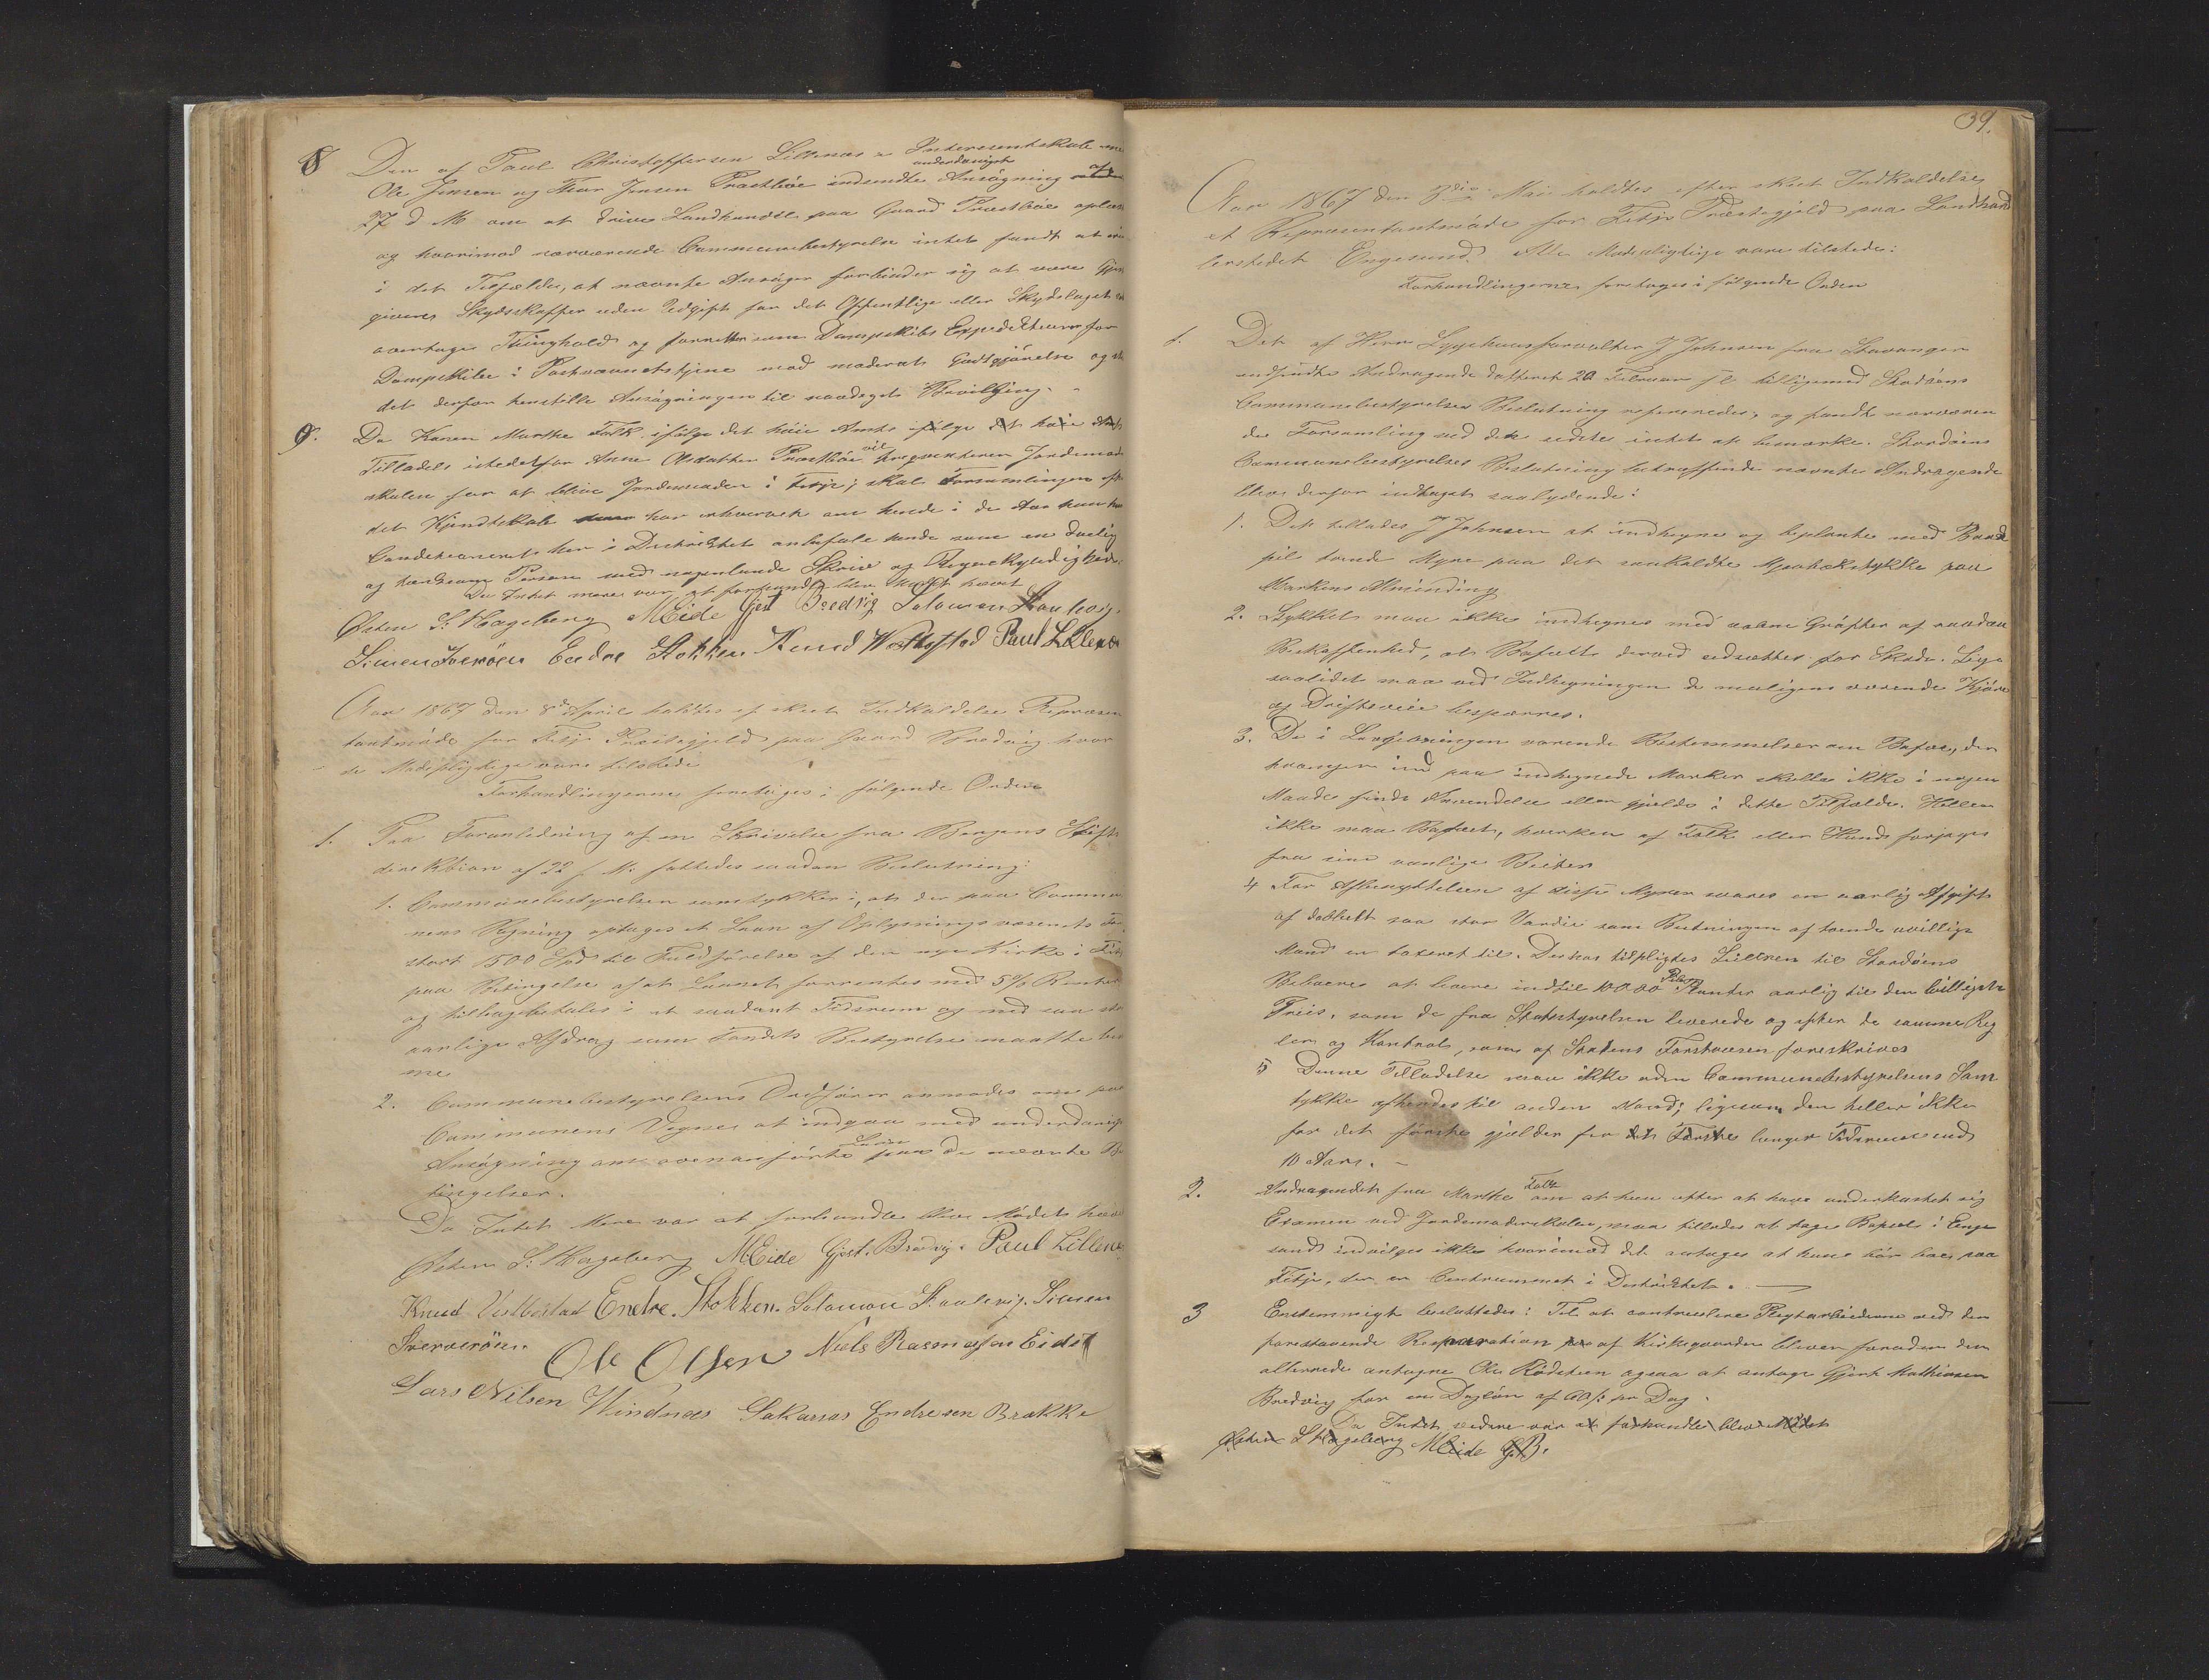 8 Den af Paul Christoffersen Lillenæs & Interesentskab med
Ole Jensen og Thor Jensen Præstbøe indsendte underdanigst Ansøgning
27 d M om at drive Landhandel paa Gaard Præstbøe oplæst
og hvorimod nærværende Communebestyrelse intet fandt at
i det Tilfælde, at nævnte Ansøger forbinder sig at være Gjest
giveri Skydsskaffer uden Udgift for det Offentlige eller Skydslaget
overtage Thinghold og forretter som Dampskibs Expediteur for
Dampskibe i Postvæsnetstjene mod moderat Godtgjørelse og
det derfor henstille Ansøgningen til naadigst Bevilgning.
9. Da Konen Marthe Falk ifølge det høie Amts ifølge det høie Amts
Tilladels istedetfor Anne Olsdatter Præstbøe vil freqventeren Jordemoder
skolen for at blive Jordemoder i Fitje; skal Forsamlingen efter
det Kjendskab har erhvervet om hende i de Aar hun har
Conditioneret her i Districktet anbefale hende som en duelig
og Person med nogenlunde Skrive og Regnekyndighed
Da Intet mere var at forhandle blev Mødet hævet
Østen S: Hageberg MEide Gjert Bredvig Salomon Haukevig.
Simen Iverøen Endre Stokken Knud Westbøstad Paul Lillenæs
Aar 1867 den 8de April holdtes ef skeet Indkaldelse Repræsen
tantmøde for Fitje Præstegjeld paa Gaard Bredvig hvor
de Mødepligtige vare tilstede
Forhandlingerne foretoges i følgende Orden
1. Paa Foranledning af en Skrivelse fra Bergens Stifts
direktion af 22 f M: fattedes saadan Beslutning:
1. Communebestyrelsen samtykker i, at der paa Commu
nens Regning optages et Laan af Oplysningsvæsenets
stort 1500 Spd til Fuldførelse af den nye Kirke i Fitje
paa Betingelse af at Laanet forrentes med 5% Renter
og tilbagebetales i et saadant Tidsrum og med saa
aarlige Afdrag som Fondets Bestyrelse maatte
me
2. Communebestyrelsens Ordfører anmodes om paa
Communens Vegne at indgaa med underdanigst
Ansøgning om ovenanførte Laan paa de nævnte Be
tingelser.
Da Intet Mere var at forhandle blev Mødet hævet
Østen S: Hageberg MEide Gjert. Bredvig. Paul Lillenæs
Knud Vestbøstad Endre. Stokken. Salomon Haukevig. Simen
Iverøen. Ole Olsen Niels Rasmussen Eide
Lars Nilsen Windnæs Sakarias Endresen Brakke
39.
Aar 1867 den 3die Mai holdtes efter skeet Indkaldelse
et Repræsentantmøde for Fitje Præstegjeld paa Landhand
lerstedet Engesund. Alle Mødepligtige vare tilstede:
Forhandlingerne foretoges i følgende Orden
1. Det af Herr Sygehuusforvalter J Johnsen fra Stavanger
indsendte Andragende datteret 20 Februar f A: tilligemed Stordøens
Communebestyrelses Beslutning refereredes, og fandt nærværen
de Forsamling ved den sidste intet at bemærke. Stordøens
Communebestyrelses Beslutning betræffende nævnte Andragende
blev derfor indtaget saalydende:
1. Det tillades J Johnsen at indhegne og beplante med Baand
pil tvende Myre paa det saakaldte Apothekstykke paa
Markens Alminding
2. Stykket maa ikke indhegnes med aabne Grøfter af saadan
Beskaffenhed, at Bøfæet derved udsættes for Skade. Lige
saalidet maa ved Indhegningen de muligens værende Kjøre
og Driftsveie bespærres.
3. De i Lovgivningen værende Bestemmelser om Bøfæ, der
trænger ind paa indhegnede Marker skulle ikke i nogen
Maade finde Anvendelse eller gjælde i dette Tilfælde. Heller
ikke maa Bøfæet, hverken af Folk eller Hunde forjages
fra sine vanlige Beiter
4 For Afbenyttelsen af disse Myrer svares en aarlig Afgift
af dobbelt saa stor Værdie som Beitningen af tvende uvillige
Mænd er taxeret til. Desuten tilpligtes Lietren til Stordøens
Beboere at levere indtil 10000 Pile Planter aarlig til den billigste
Priis, som de fra Statsstyrelsen leverede og efter de samme Reg
ler og Kontrol, som af Statens Forstvæsen foreskrives
5 Denne Tilladelse maa ikke uden Communebestyrelsens Sam
tykke afhændes til anden Mand; ligesom den heller ikke
for det første gjælder for det Første længer Tidsrum end
10 Aars. –
2. Andragendet fra Marthe Falk om at hun efter at have underkastet sig
Examen ved Jordemoderskolen, maa tillades at tage Bopæl i Enge
sund indvilges ikke hvorimod det antages at hun bør boe paa
Fitje, der er Centrummet i Districktet.
3 Enstemmigt besluttedes: Til at controllere Pligtarbeiderne ved den
forestaaende Reparation af Kirkegaarden bliver foruden den
allerede antagne Ole Rødstein ogsaa at antage Gjert Mathiesen
Bredvig for en Dagløn af 60 s: pr Dag.
Da Intet videre var at forhandle blev Mødet
Østen S Hageberg MEide G.B.